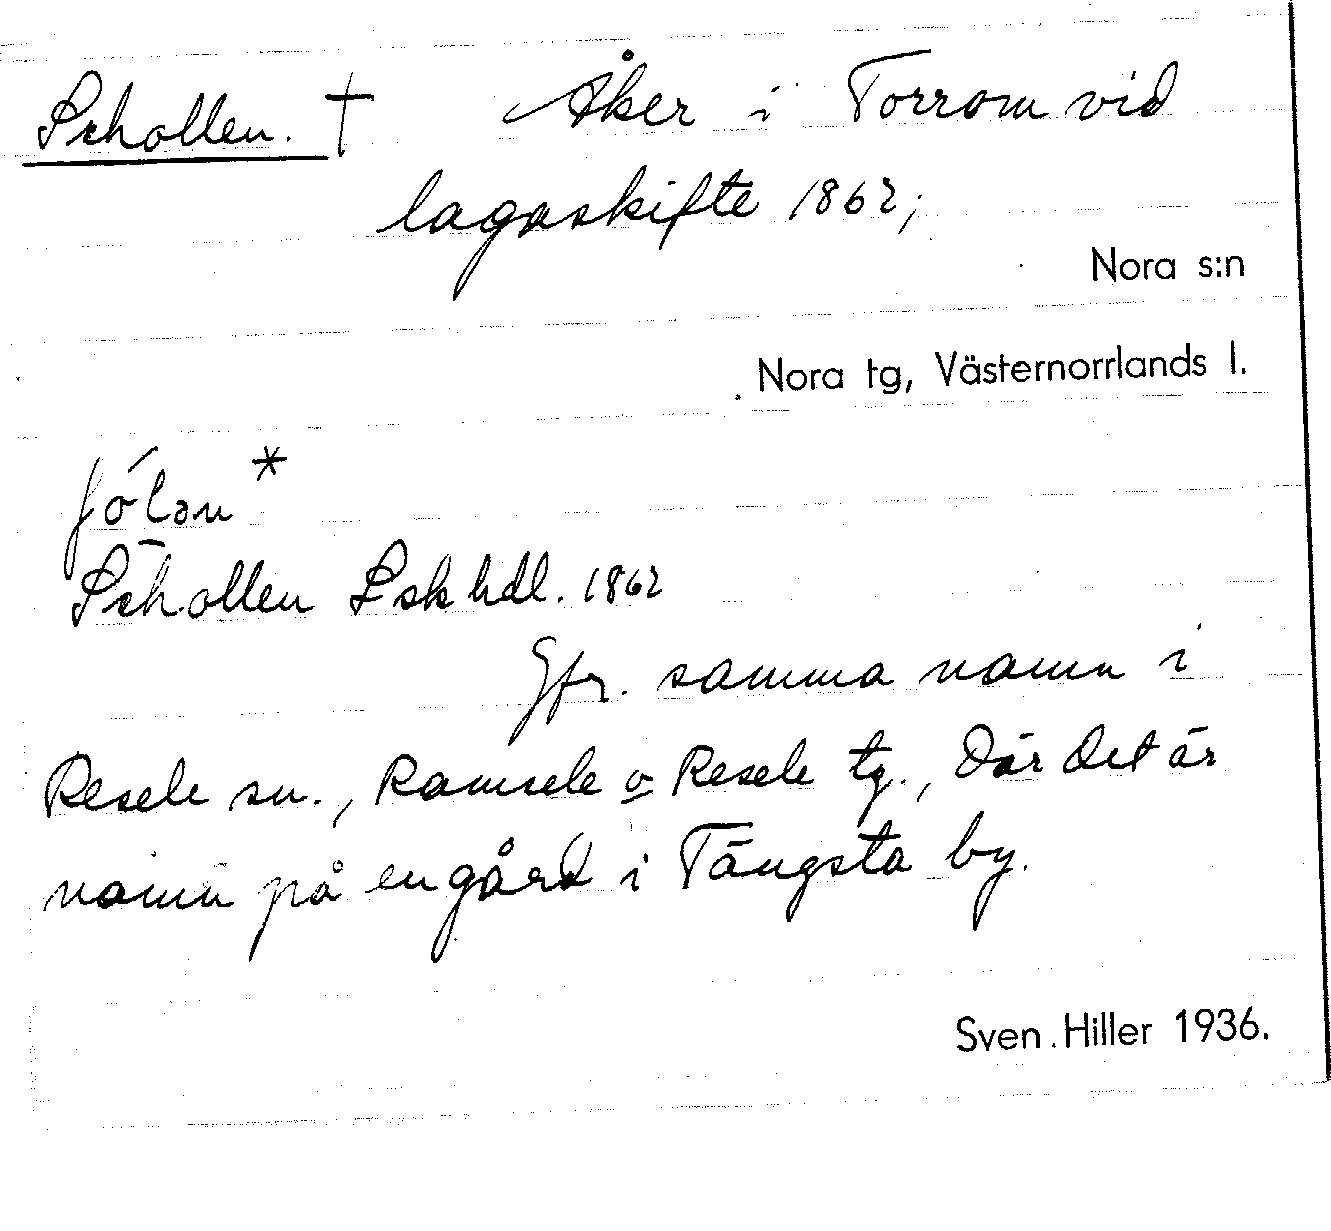 Schollen. † Åker i Torrom vid
lagaskifte 1862;
Nora s:n
Nora tg, Västernorrlands l.
Schollen Lskhdl. 1862
Jfr. samma namn i
Resele sn., Ramsele o Resele tg., där det är
namn på en gård i Tängsta by.
Sven Hiller 1936.